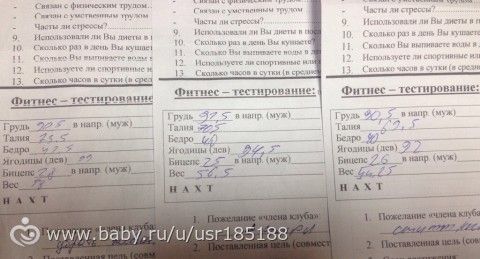 Связан с физическим трудом
Связан с умственным трудом
Часты ли стрессы?
9. Использовали ли Вы диеты в пос
10. Сколько раз в день Вы кушает
11. Сколько Вы выпиваете воды в
12. Используете ли спортивные или
13 Сколько часов в сутки (в средне
Фитнес – тестирование:
Грудь в напр. (муж)
Талия
Бедро
Ягодицы (дев)
Бицепс 28 в напр. (муж)
Вес
Н А Х Т
1. Пожелание «члена клуба»
2. Поставленная цель (совмест
- Связан с физическим трудом
- Связан с умственным трудом
- Часты ли стрессы?
9. Использовали ли Вы диеты в по
10. Сколько раз в день Вы кушает
11. Сколько Вы выпиваете воды в
12. Используете ли спортивные и
13 Сколько часов в сутки (в средн
Фитнес – тестирование:
Грудь 92,5 в напр. (муж)
Талия
Бедро
Ягодицы (дев) 94,5
Бицепс 25 в напр. (муж)
Вес 56,5
Н А Х Т
1. Пожелание «члена клуба»
2. Поставленная цель (совмес
Связан с умственным
Часты ли стрессы?
9. Использовали ли Вы диеты в п
10. Сколько раз в день Вы кушае
11. Сколько Вы выпиваете воды
12. Используете ли спортивные и
13 Сколько часов в сутки (в сред
Фитнес – тестирование
Грудь 90,5 в напр. (муж)
Талия
Бедро
Ягодицы (дев) 92
Бицепс 26 в напр. (муж)
Вес
Н А Х Т
1. Пожелание «члена клуба
2. Поставленная цель (совм
www.baby.ru/u/usr185188